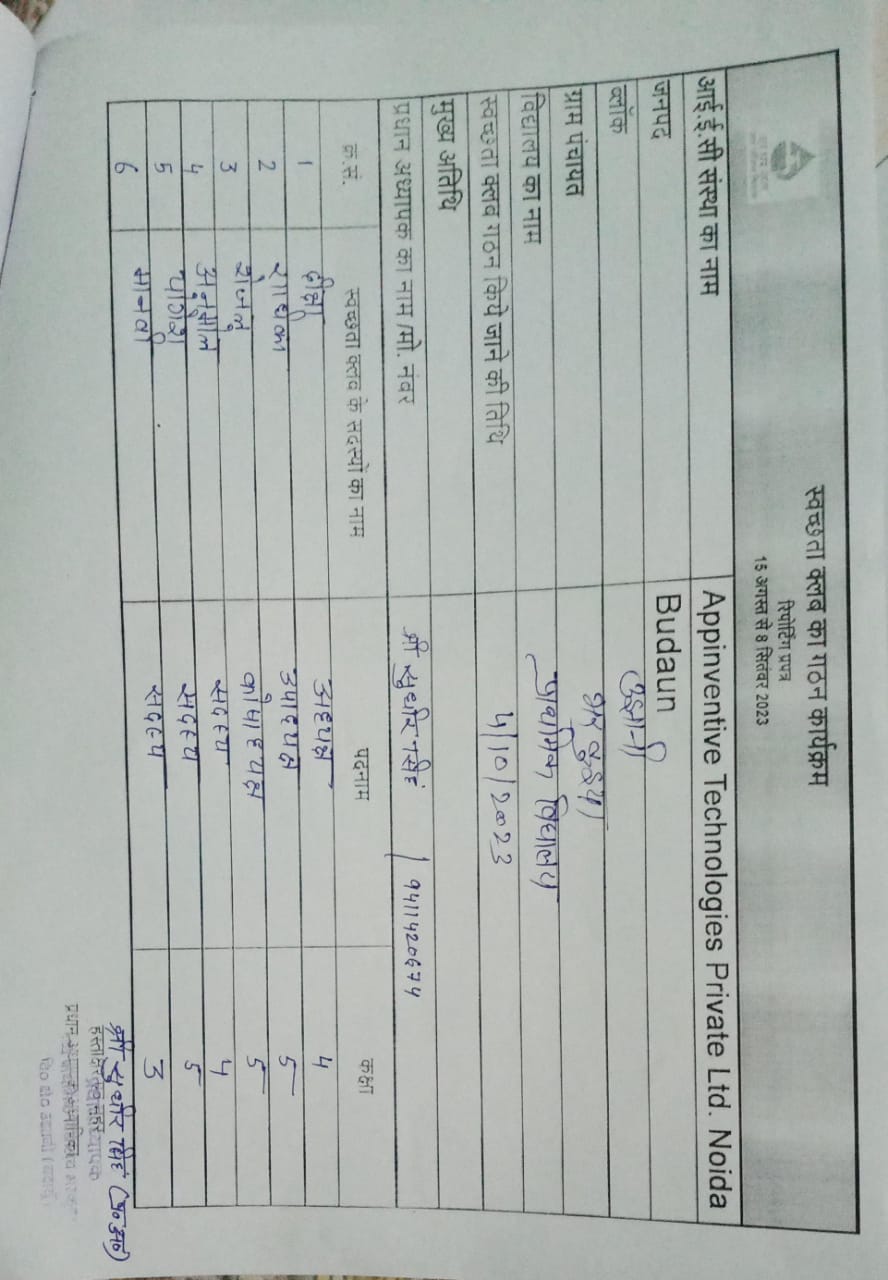 स्वच्छता क्लब का गठन कार्यक्रम
रिपोर्टिंग प्रपत्र
15 अगस्त से 8 सितंबर 2023
आई.ई.सी संस्था का नाम Appinventive Technologies Private Ltd. Noida
जनपद Budaun
ब्लॉक उझानी
ग्राम पंचायत
विद्यालय का नाम प्राथमिक विद्यालय
स्वच्छता क्लव गठन किये जाने की तिथि 4/10/2023
मुख्य अतिथि
प्रधान अध्यापक का नाम /मो. नंवर श्री सुधीर सिंह / 9411420674
क्र.सं. स्वच्छता क्लव के सदस्यों का नाम पदनाम कक्षा
1 दीक्षा अध्यक्ष 4
2 राधिका उपाध्यक्ष 5
3 कोषाध्यक्ष 5
4 सदस्य 4
5 सदस्य 5
6 मानवी सदस्य 3
श्री सुधीर सिंह (प्र०अ०)